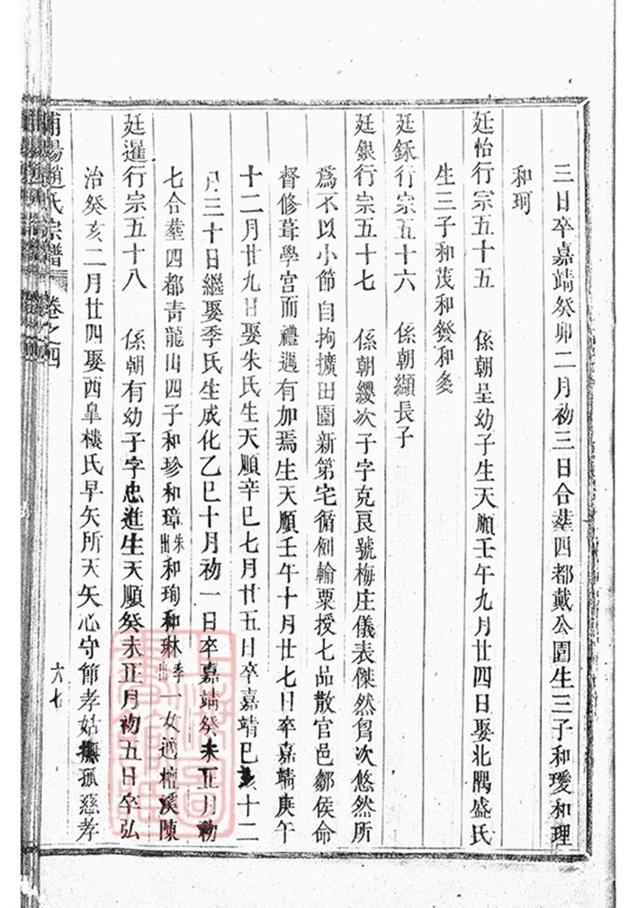 三日卒嘉靖癸卯二月初三日合塟四都戴公園生三子和璦和理
和珂
廷怡行宗五十五　係朝呈幼子生天順壬午九月廿四日娶北隅盛氏
生三子和茂和發和夋
廷銢行宗五十六　係朝纈長子
廷銀行宗五十七　係朝纓次子字克良號梅庄儀表傑然胷次悠然所
爲不以小節自拘擴田園新第宅循例輸粟授七品散官邑鄒侯命
督修葺學宮而禮遇有加焉生天順壬午十月廿七日卒嘉靖庚午
十二月廿九日娶朱氏生天順辛巳七月廿五日卒嘉靖己亥十二
月三十日繼娶季氏生成化乙巳十月初一日卒嘉靖癸未正月初
七合塟四都青龍山四子和珍和璋朱出和珣和琳季出一女適檀溪陳
廷暹行宗五十八　係朝有幼子字忠進生天順癸未正月初五日卒弘
治癸亥二月廿四娶西皐樓氏早矢所天矢心守節孝姑撫孤慈孝
浦陽趙氏宗譜　卷之四
六七